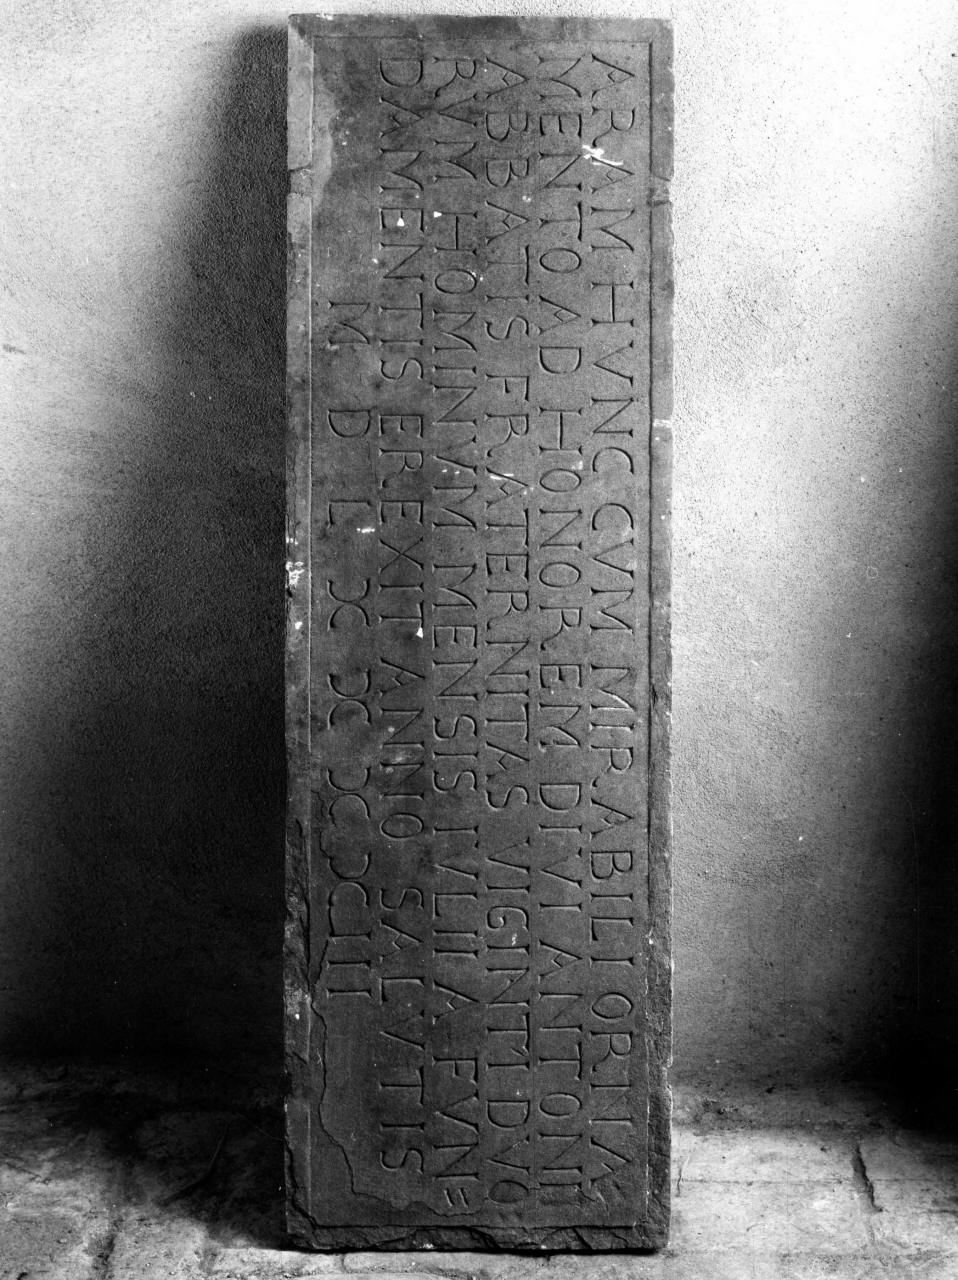 ARAM HVNC CVM MIRABILI ORNA=
MENTO AD HONOREM DIVI ANTONII
ABBATIS FRATERNITAS VIGINTI DVO
RVM HOMINVM MENSIS IVLII A FVN=
DAMENTIS EREXIT ANNO SALVTIS
M D L X X X X III